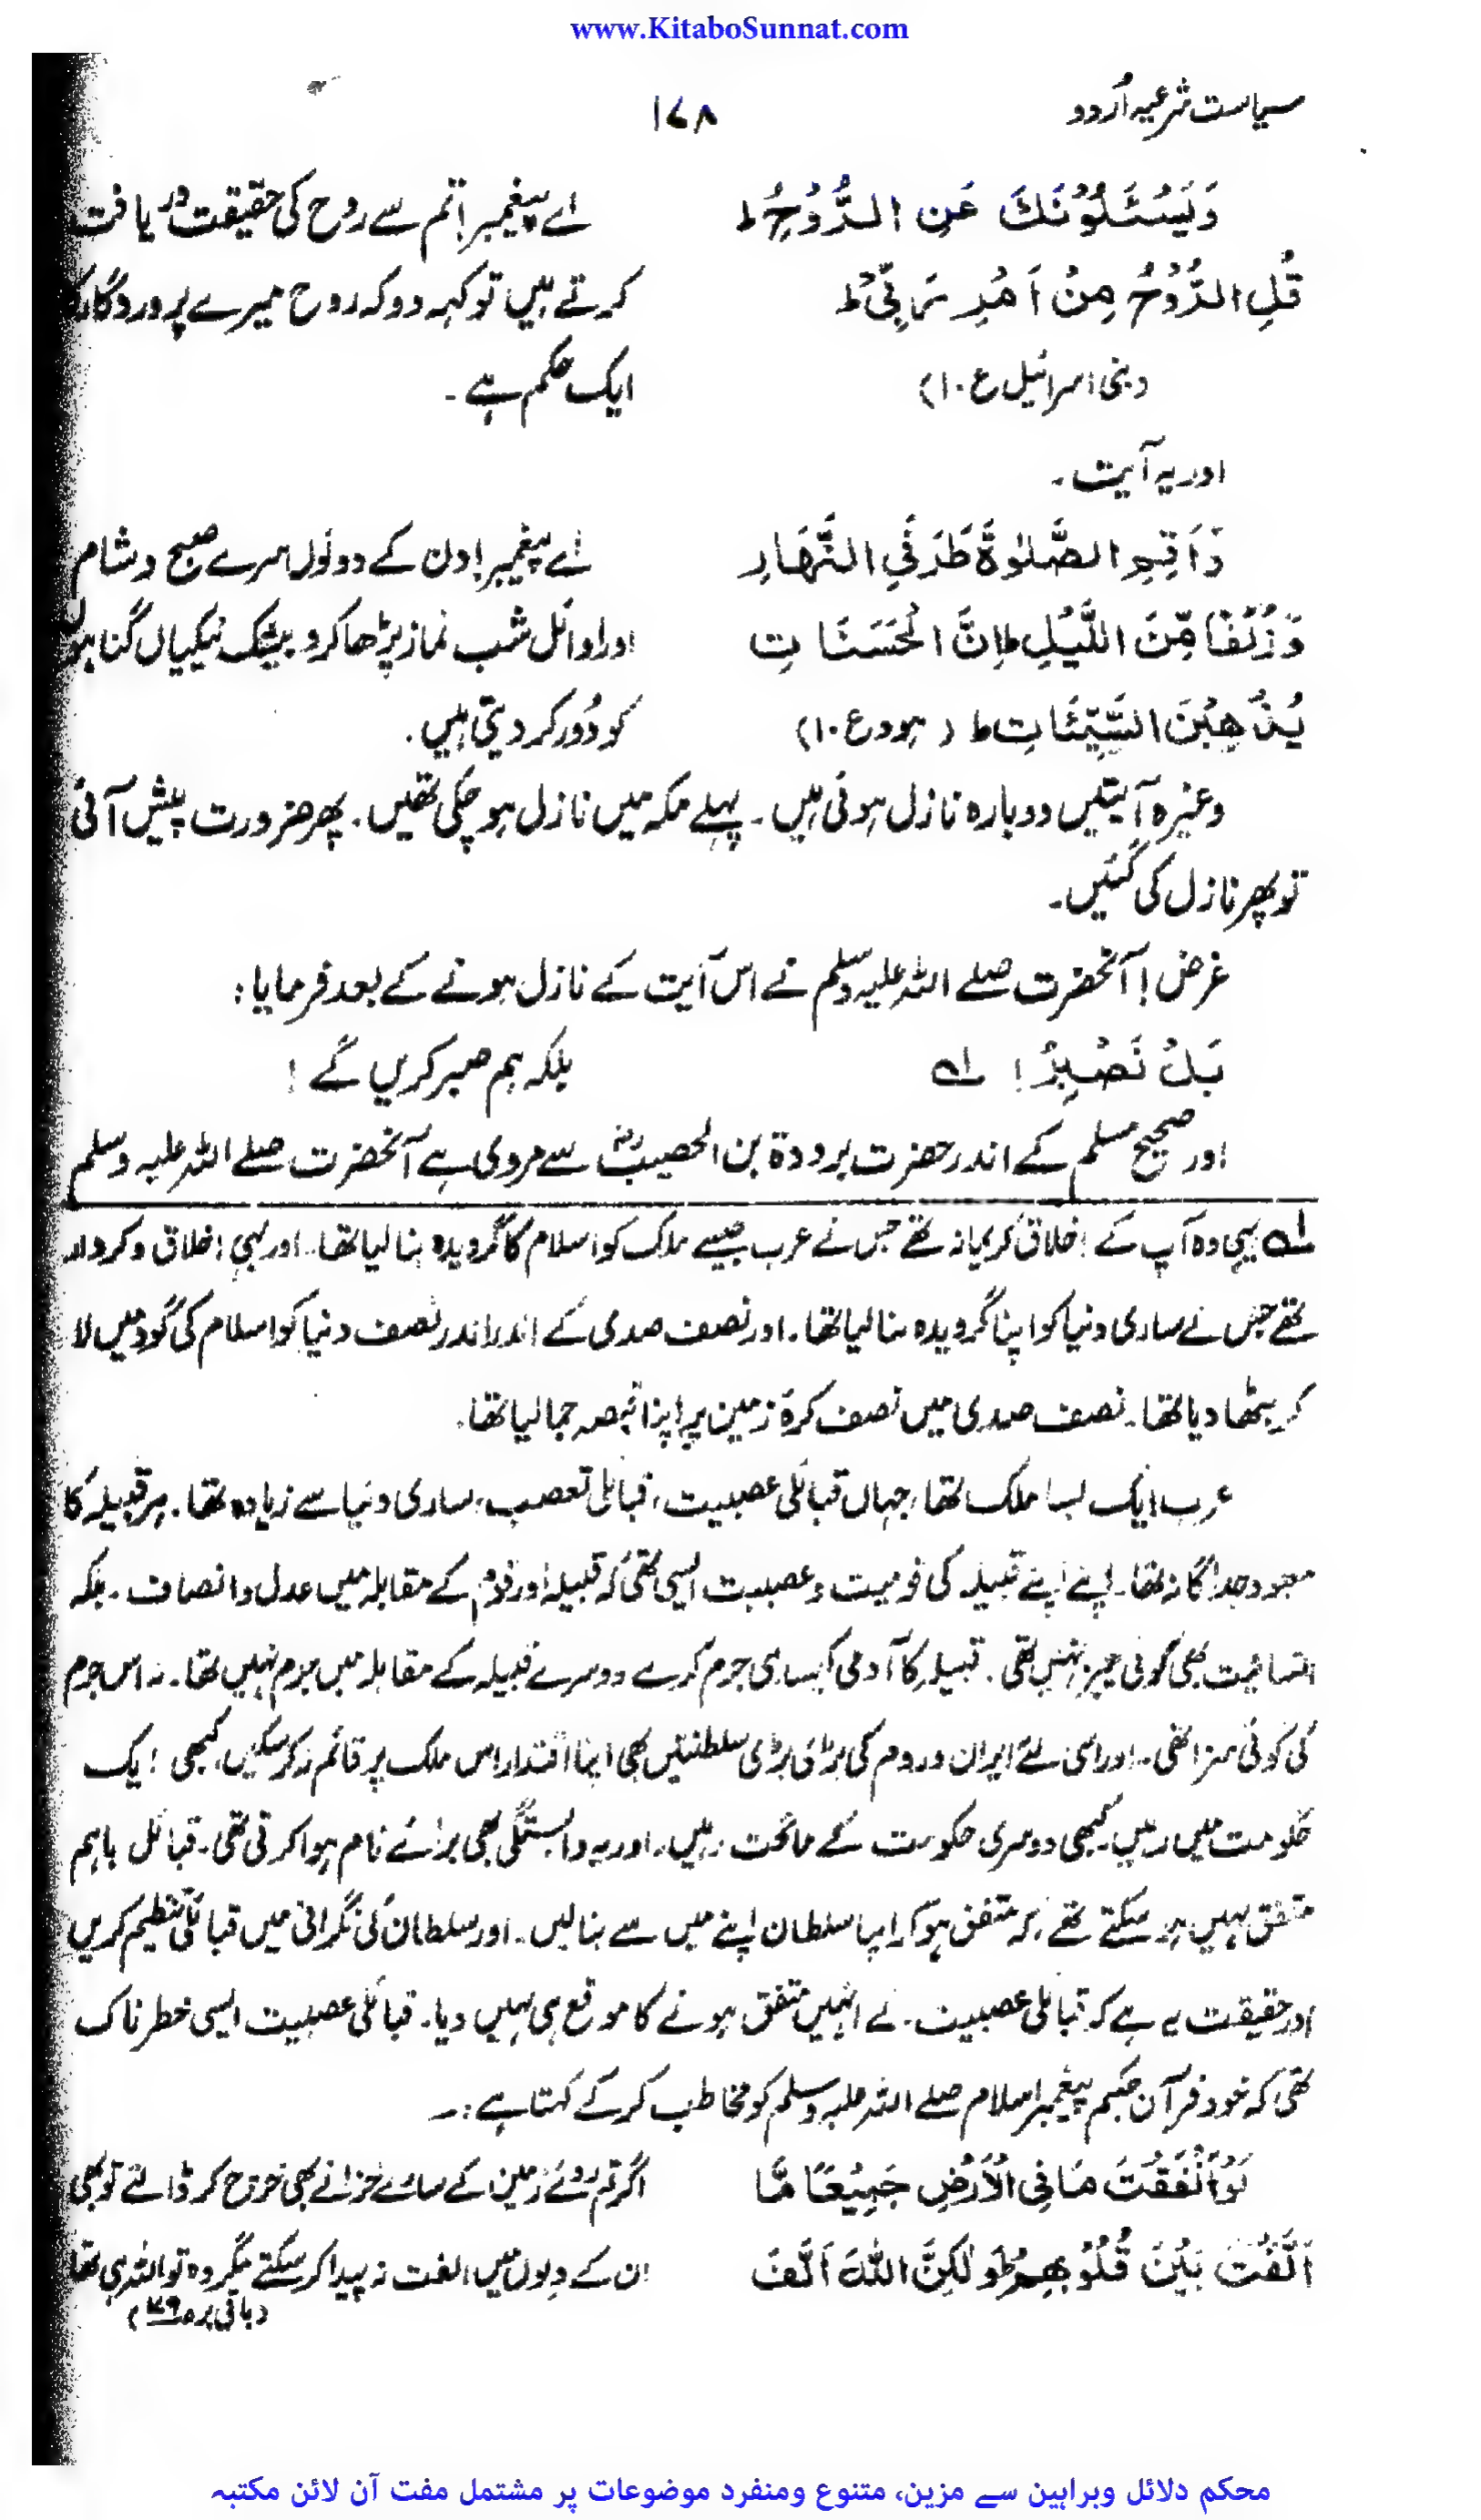 www.KitaboSunnat.com
سیاست شرعیہ اُردو ۱۷۸
وَيَسْئَلُوْنَكَ عَنِ الرُّوْحِ ط اے پیغمبر! تم سے روح کی حقیقت دریافت
قُلِ الرُّوْحُ مِنْ اَمْرِ رَبِّیْ ط کرتے ہیں تو کہہ دو کہ روح میرے پروردگار کا
(بنی اسرائیل ع ۱۰) ایک حکم ہے ۔
اور یہ آیت ۔
وَاَقِمِ الصَّلٰوةَ طَرَفَیِ النَّهَارِ اے پیغمبر! دن کے دونوں سرے صبح و شام
وَزُلَفًا مِّنَ اللَّيْلِ ط اِنَّ الْحَسَنَاتِ اور اوائل شب نماز پڑھا کرو بیشک نیکیاں گناہوں
يُذْهِبْنَ السَّيِّئَاتِ ط (ہود ع ۱۰) کو دُور کر دیتی ہیں ۔
وغیرہ آیتیں دوبارہ نازل ہوئی ہیں ۔ پہلے مکہ میں نازل ہو چکی تھیں ۔ پھر ضرورت پیش آئی
تو پھر نازل کی گئیں ۔
غرض! آنحضرت صلے اللہ علیہ وسلم نے اس آیت کے نازل ہونے کے بعد فرمایا :
بَلْ نَصْبِرُ! لہ بلکہ ہم صبر کریں گے !
اور صحیح مسلم کے اندر حضرت بردودۃ بن الحصیبؓ سے مروی ہے آنحضرت صلے اللہ علیہ وسلم
لہ یہی وہ آپ کے اخلاق کریمانہ تھے جس نے عرب جیسے ملک کو اسلام کا گرویدہ بنا لیا تھا ۔ اور یہی اخلاق و کردار
تھے جس نے ساری دنیا کو اپنا گرویدہ بنا لیا تھا ۔ اور نصف صدی کے اندر اندر نصف دنیا کو اسلام کی گود میں لا
کر بٹھا دیا تھا ۔ نصف صدی میں نصف کرۂ زمین پر اپنا قبضہ جما لیا تھا ۔
عرب ایک ایسا ملک تھا، جہاں قبائلی عصبیت، قبائلی تعصب، ساری دنیا سے زیادہ تھا ۔ ہر قبیلہ کا
معبود جداگانہ تھا ۔ اپنے اپنے قبیلہ کی قومیت و عصبیت ایسی تھی کہ قبیلہ اور قوم کے مقابلہ میں عدل و انصاف ۔ بلکہ
انسانیت بھی کوئی چیز نہیں تھی ۔ قبیلہ کا آدمی کیسا ہی جرم کرے دوسرے قبیلہ کے مقابلہ میں جرم نہیں تھا ۔ نہ اس جرم
کی کوئی سزا تھی ۔ اور اسی لئے ایران و روم کی بڑی بڑی سلطنتیں بھی اپنا اقتدار اس ملک پر قائم نہ کر سکیں، کبھی ایک
حکومت میں رہیں کبھی دوسری حکومت کے ماتحت رہیں ۔ اور یہ وابستگی بھی برائے نام ہوا کرتی تھی ۔ قبائل باہم
متفق نہیں ہو سکتے تھے کہ متفق ہو کر اپنا سلطان اپنے میں سے بنا لیں ۔ اور سلطان کی نگرانی میں قبائلی تنظیم کریں
اور حقیقت یہ ہے کہ قبائلی عصبیت ۔ نے انہیں متفق ہونے کا موقع ہی نہیں دیا ۔ قبائلی عصبیت ایسی خطرناک
تھی کہ خود قرآن حکیم پیغمبر اسلام صلے اللہ علیہ وسلم کو مخاطب کر کے کہتا ہے :۔
لَوْ اَنْفَقْتَ مَا فِی الْاَرْضِ جَمِيْعًا مَّا اگر تم روئے زمین کے سارے خزانے بھی خرچ کر ڈالتے تو بھی
اَلَّفْتَ بَيْنَ قُلُوْبِهِمْ ط وَلٰكِنَّ اللّٰهَ اَلَّفَ ان کے دلوں میں الفت نہ پیدا کر سکتے مگر وہ تو اللہ ہی تھا
(باقی بر ص۱۷۹)
محکم دلائل وبراہین سے مزین، متنوع ومنفرد موضوعات پر مشتمل مفت آن لائن مکتبہ